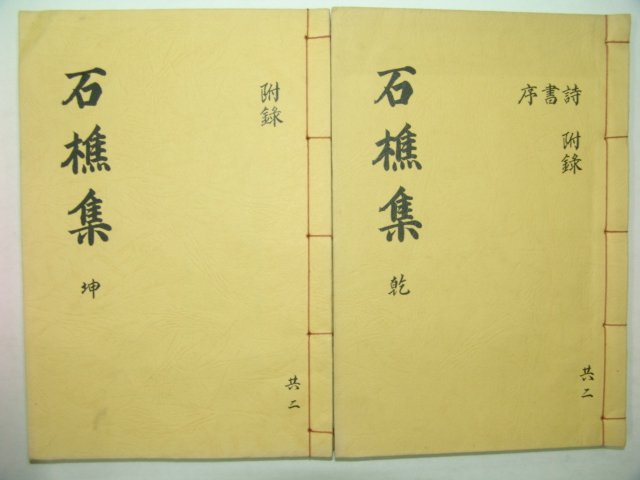 詩書序
附錄
石樵集
乾
共二
附錄
石樵集
坤
共二